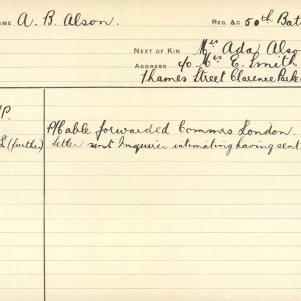 NAME A. B. Alson. REG. &C 50th Bat
NEXT OF KIN Mrs Ada Also
ADDRESS c/o Mrs E. Smith
Thames Street Clarence Park
P.
Cable forwarded Commrs London.
L (further) Letter sent Inquirer intimating having sent